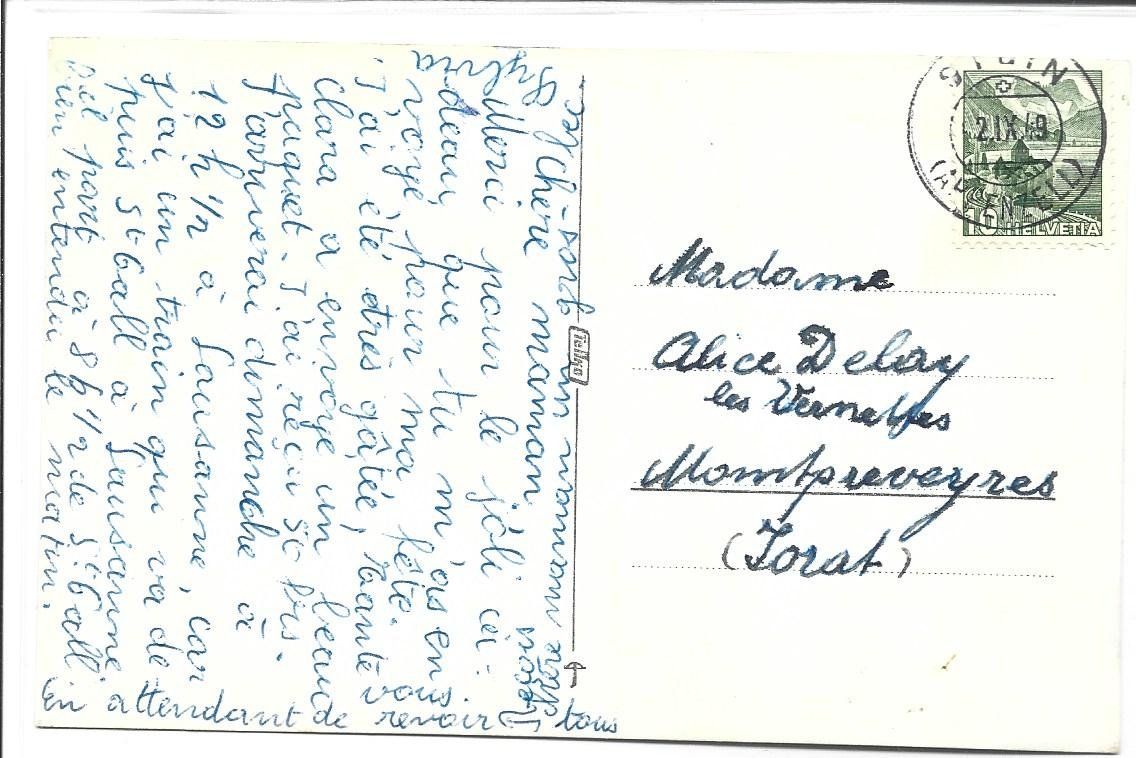 Chère maman,
Merci pour le joli ca-
deau que tu m'as en
voyé pour ma fête.
J'ai été très gâtée, tante
Clara a envoyé un beau
paquet. J'ai reçu 50 frs.
J'arriverai dimanche à
12 h 1/2 à Lausanne, car
j'ai un train qui va de
puis St-Gall à Lausanne
il part à 8 h 1/2 de St-Gall
bien entendu le matin.
En attendant de vous revoir tous
chère maman
Sylvia
Telko
Madame
Alice Delay
les Vernettes
Montpreveyres
(Jorat)
STEIN
2.IX.49
(APPENZELL)
10 HELVETIA